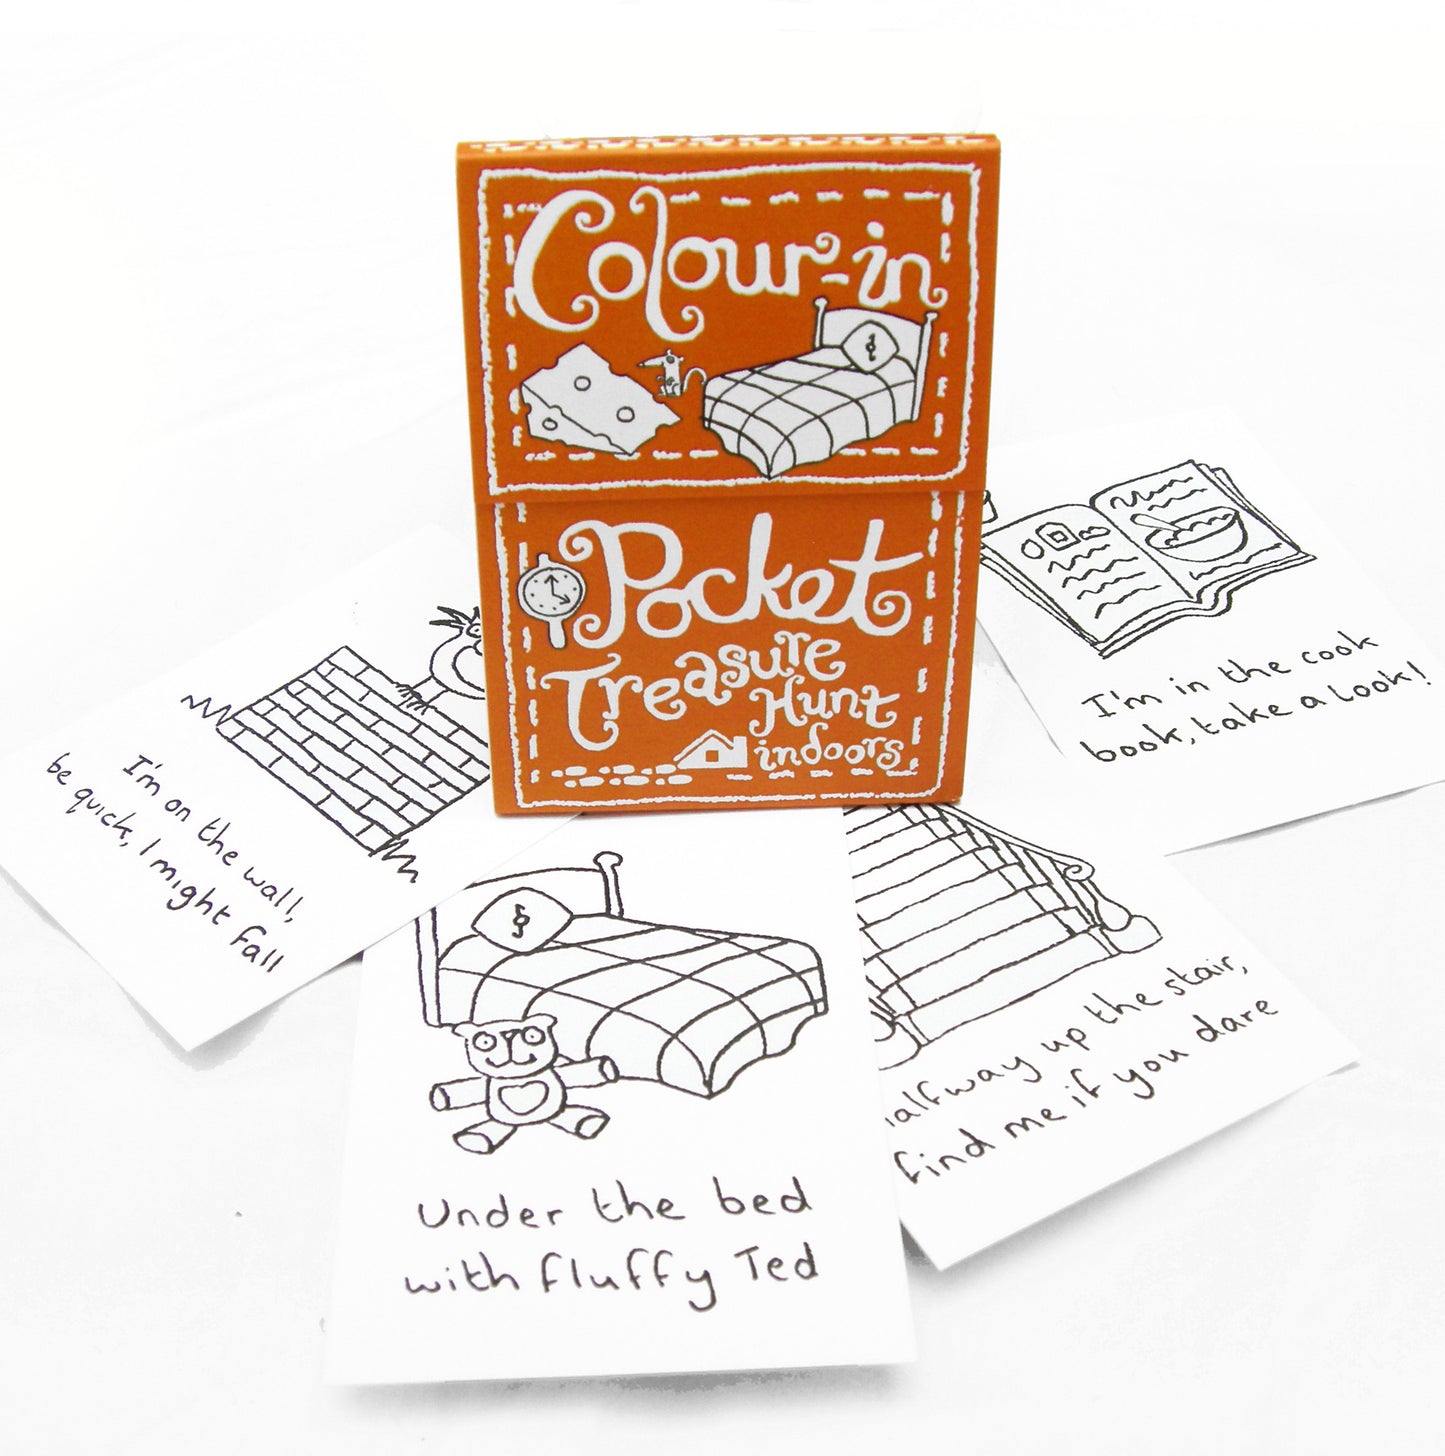 Colour-in
Pocket
Treasure
Hunt
indoors
I'm on the wall,
be quick, I might fall
I'm in the cook
book, take a look!
up the stair,
find me if you dare
Under the bed
with fluffy Ted